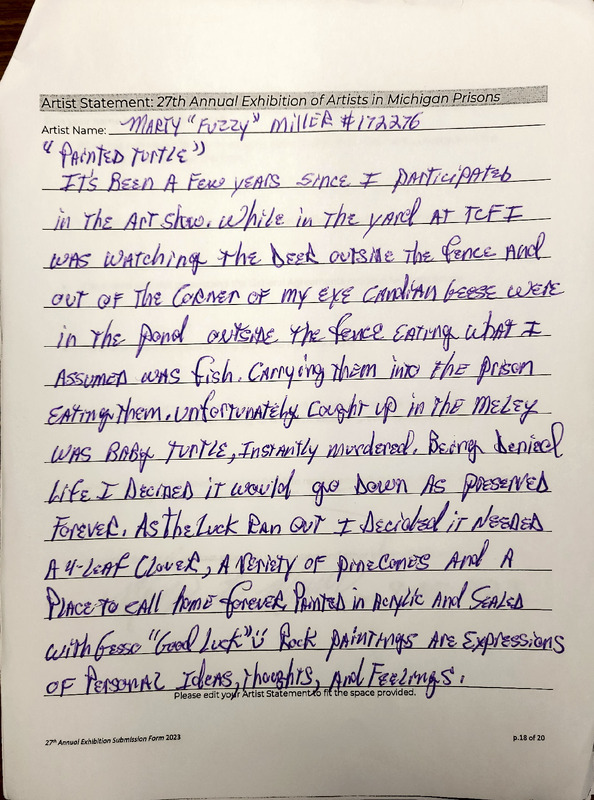 Artist Statement: 27th Annual Exhibition of Artists in Michigan Prisons
Artist Name: MARTY "FUZZY" MILLER #172276
"PAINTED TURTLE"
IT'S BEEN A FEW YEARS SINCE I PARTICIPATED
in THE ART SHOW. WHILE in THE YARD AT TCF I
WAS WATCHING THE DEER OUTSIDE THE FENCE AND
OUT OF THE CORNER OF MY EYE CANDIAN GEESE WERE
in THE POND OUTSIDE THE FENCE EATING WHAT I
ASSUMED WAS FISH. CARRYING THEM INTO THE PRISON
EATING THEM. UNFORTUNATELY CAUGHT UP IN THE MELEY
WAS BABY TURTLE, INSTANTLY MURDERED. BEING DENIED
LIFE I DECIDED IT WOULD GO DOWN AS PRESERVED
FOREVER. AS THE LUCK RAN OUT I DECIDED IT NEEDED
A 4-LEAF CLOVER, A VERIETY OF PINECONES AND A
PLACE TO CALL HOME FOREVER PAINTED IN ACRYLIC AND SEALED
WITH GESSO "GOOD LUCK" Ü ROCK PAINTINGS ARE EXPRESSIONS
OF PERSONAL IDEAS, THOUGHTS, AND FEELINGS.
Please edit your Artist Statement to fit the space provided.
27th Annual Exhibition Submission Form 2023
p.18 of 20